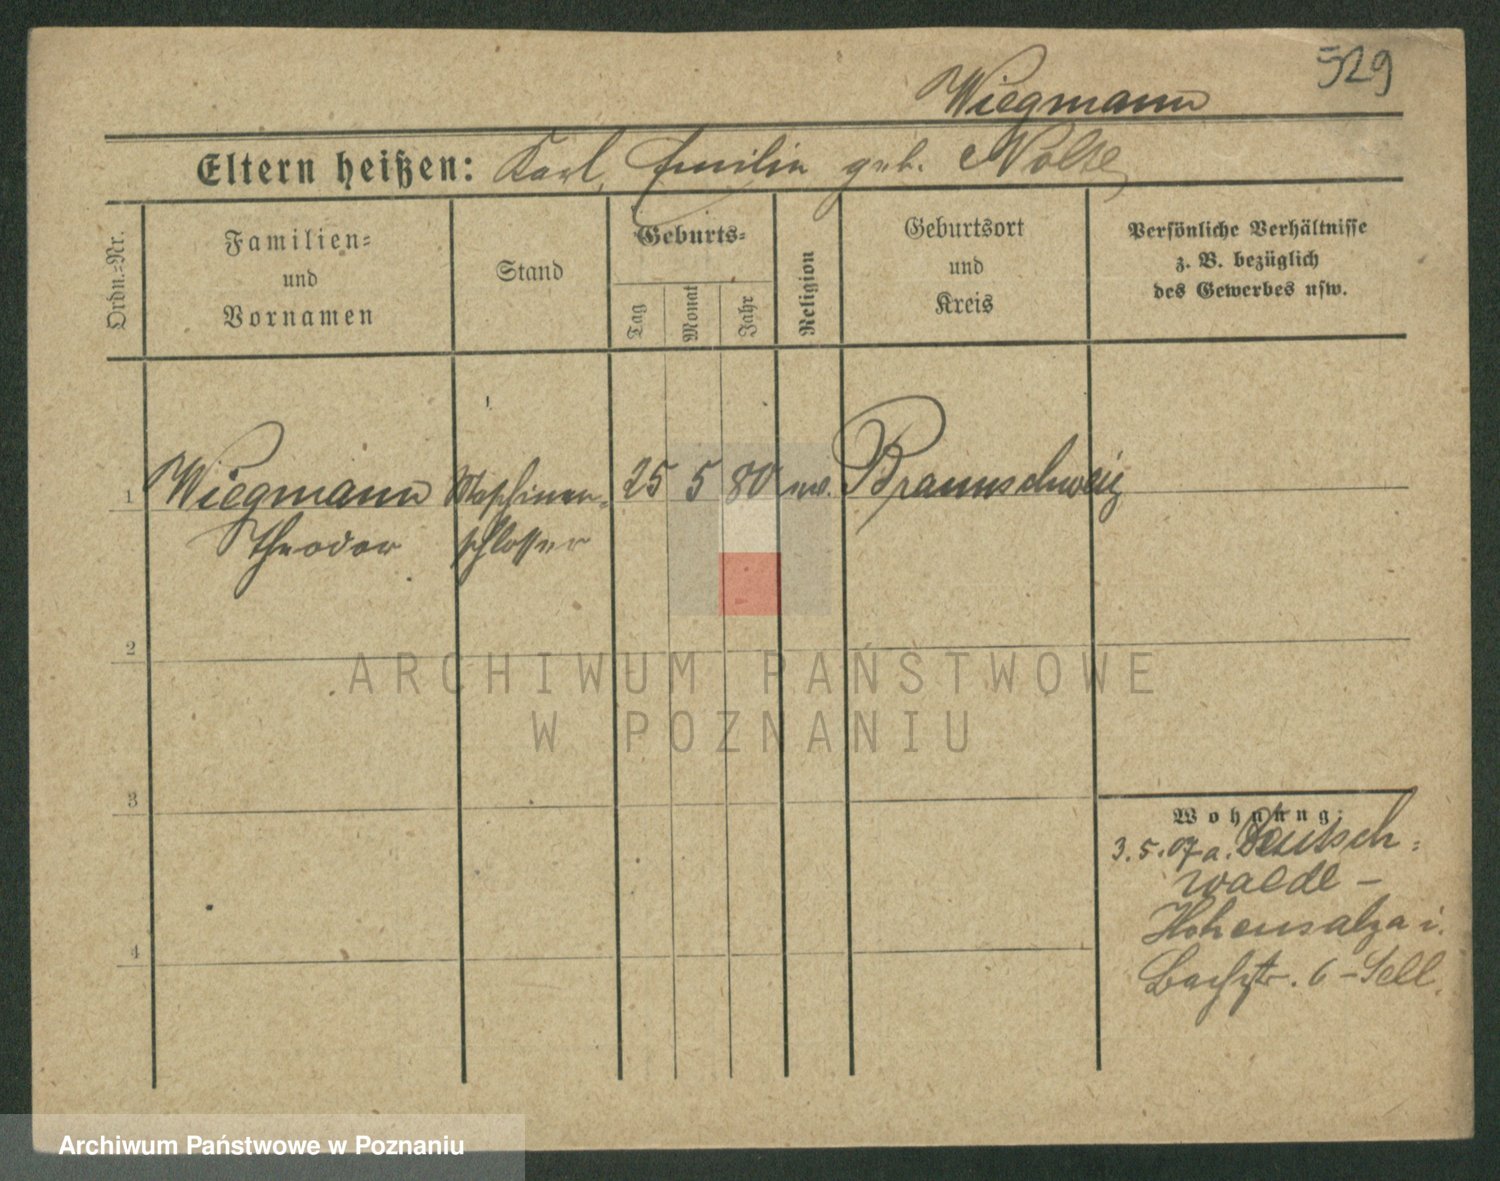 529
Wiegmann
Eltern heißen: Karl, Emilie geb. Nolte
Ordn.=Nr.
Familien=
und
Vornamen
Stand
Geburts=
Tag
Monat
Jahr
Religion
Geburtsort
und
Kreis
Persönliche Verhältnisse
z. B. bezüglich
des Gewerbes usw.
1 Wiegmann Maschinen= 25 5 80 ev. Braunschweig
Theodor schlosser
2
3
4
Wohnung:
3.5.07 a. Deutsch=
walde –
Hohensalza i.
Bachstr. 6 – Sell.
ARCHIWUM PAŃSTWOWE
W POZNANIU
Archiwum Państwowe w Poznaniu